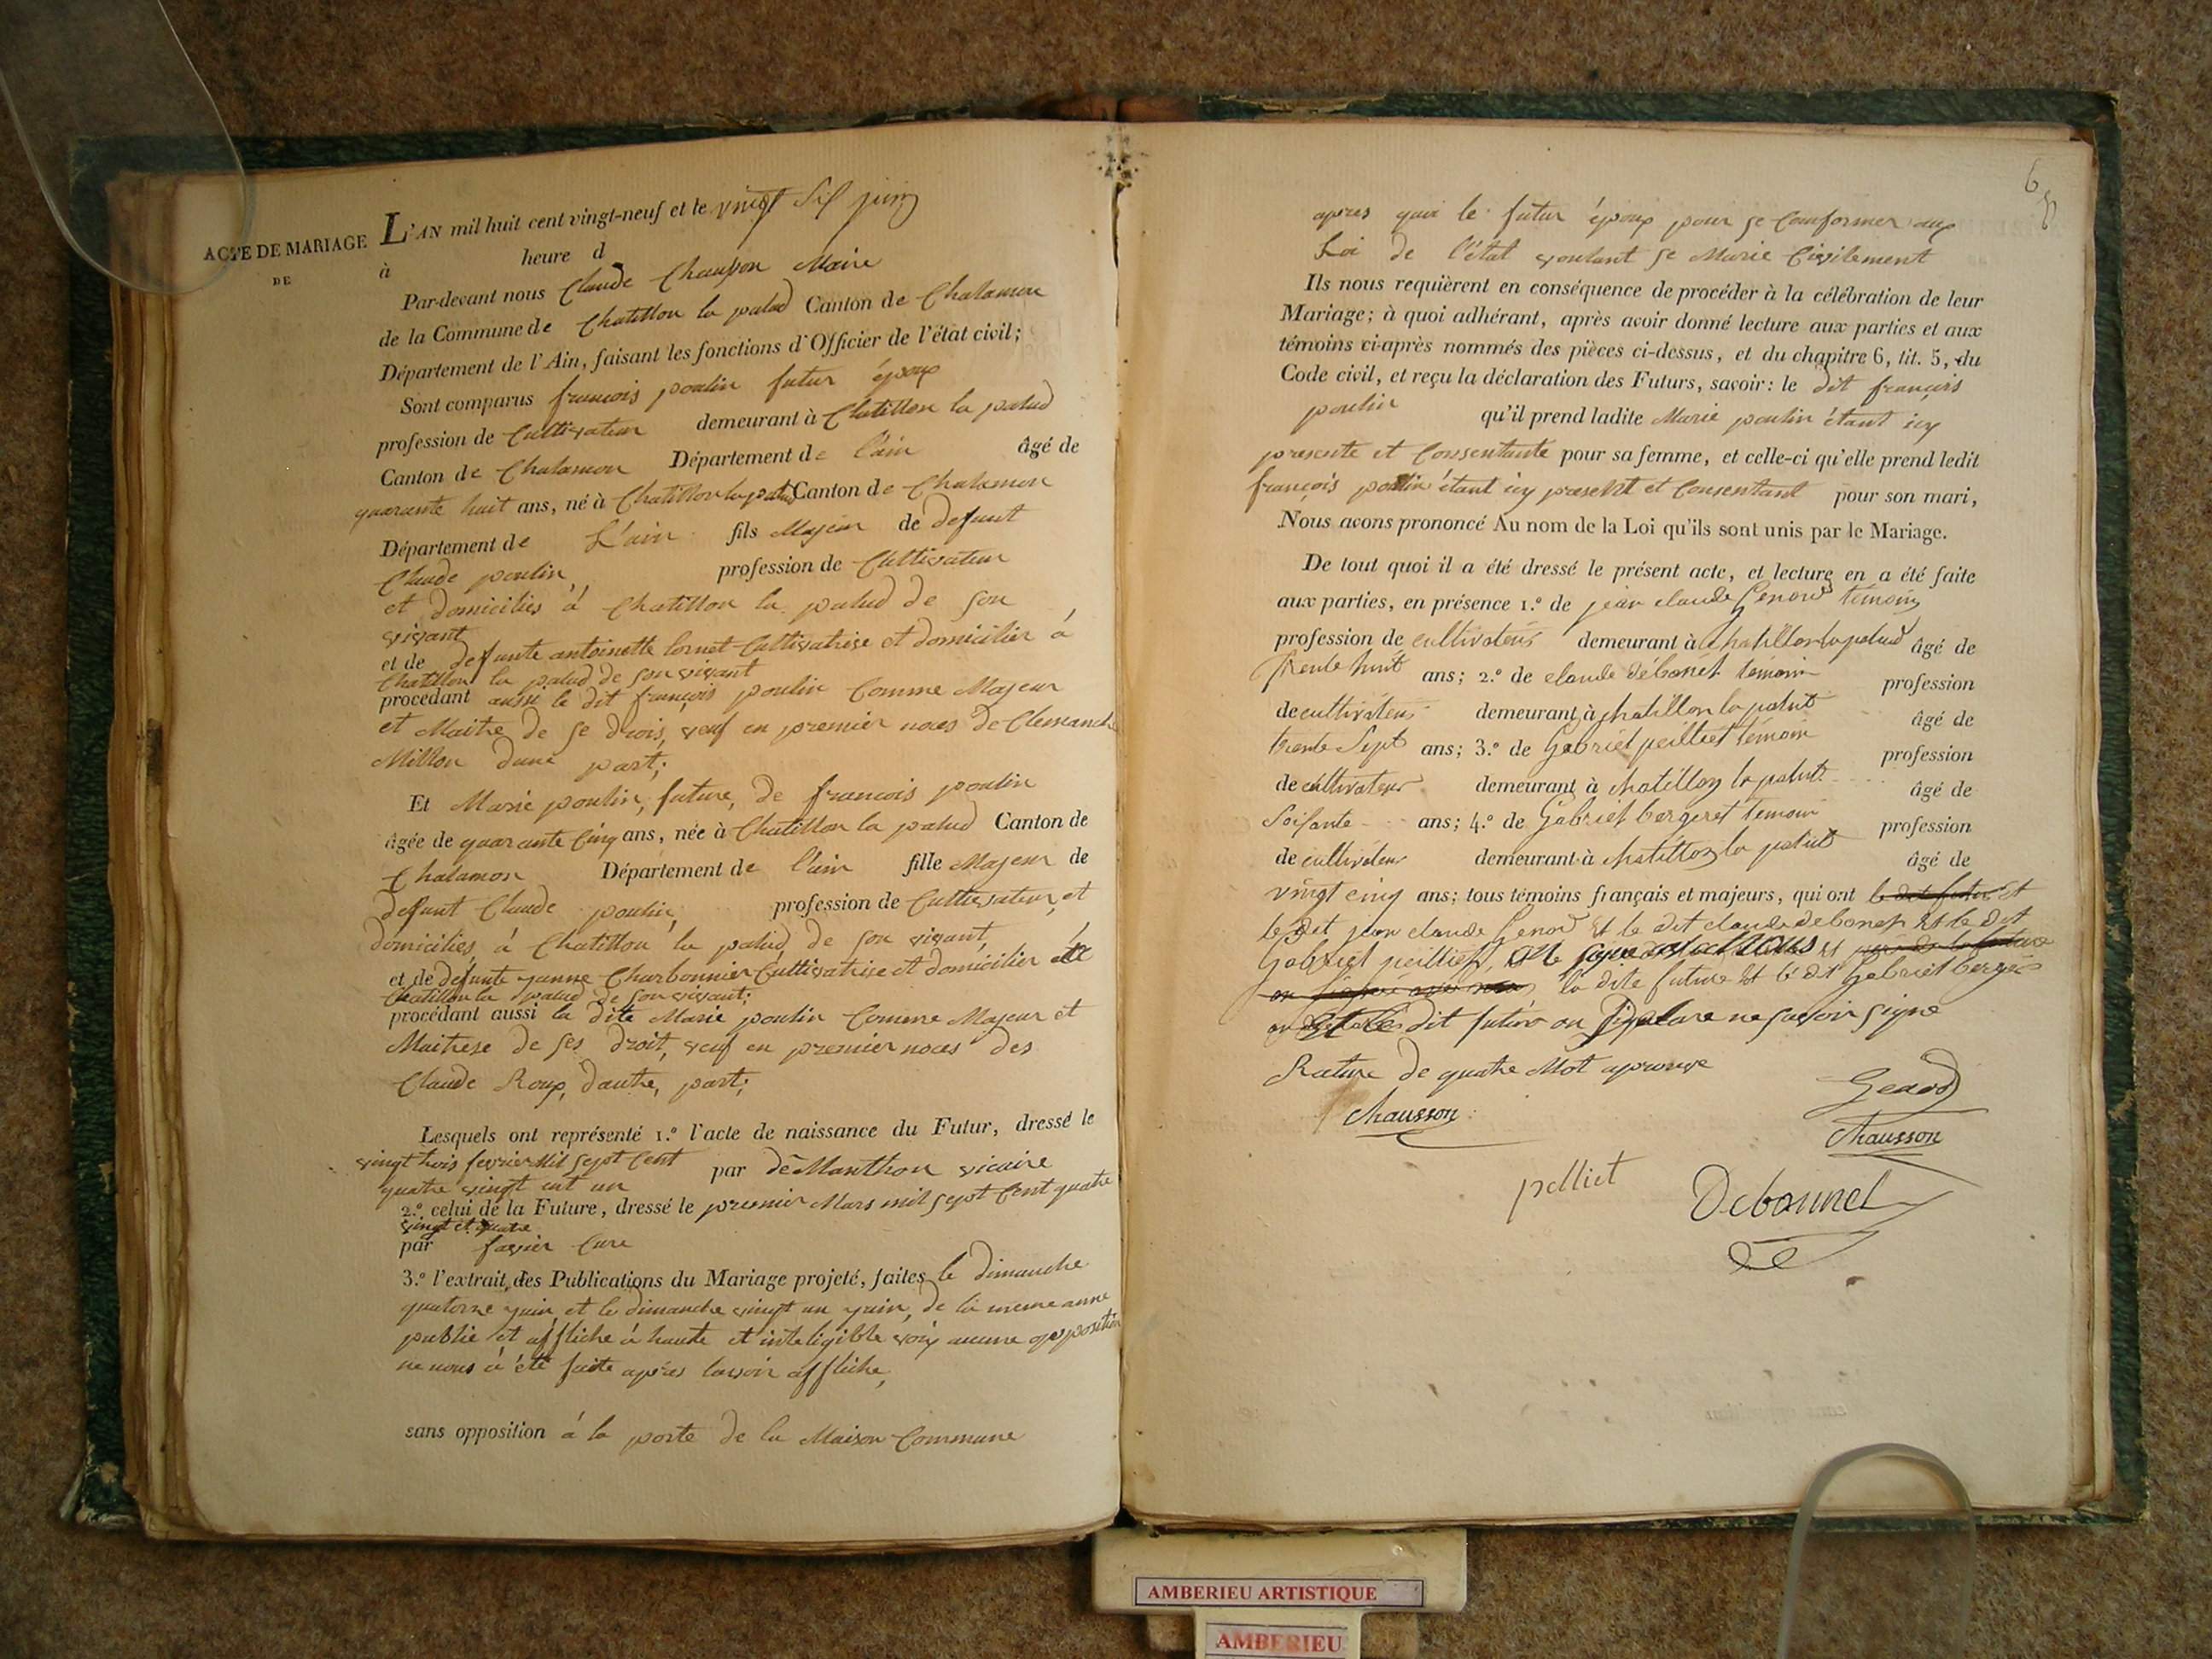 ACTE DE MARIAGE
DE
L'AN mil huit cent vingt-neuf et le vingt Six juin
à heure d
Par-devant nous Claude Chausson Maire
de la Commune de Chatillon la palud Canton de Chalamon
Département de l'Ain, faisant les fonctions d'Officier de l'état civil;
Sont comparus francois poulin futur époux
profession de Cultivateur demeurant à Chatillon la palud
Canton de Chalamon Département de l'ain âgé de
quarante huit ans, né à Chatillon la palud Canton de Chalamon
Département de L'ain fils Majeur de defunt
Claude poulin, profession de Cultivateur
et domiciliés á Chatillon la palud de son
vivant
et de defunte antoinette Cornet Cultivatrise et domicilier á
Chatillon la palud de son vivant
procédant aussi le dit françois poulin Comme Majeur
et Maitre de se drois, veuf en premier noces de Clemanche
Millon dune part;
Et Marie poulin, future, de francois poulin
âgée de quarante Cinq ans, née à Chatillon la palud Canton de
Chalamon Département de l'ain fille Majeur de
defunt Claude poulin, profession de Cultivateur, et
domicilies, á Chatillon la palud de son vivant,
et de defunte janne Charbonnier Cultivatrise et domicilier
Chatillon la palud de son vivant;
procédant aussi la dite Marie poulin Comme Majeur et
Maitrese de ses droit, veuf en premier noces des
Claude Roux, dautre, part;
Lesquels ont représenté 1.º l'acte de naissance du Futur, dressé le
vingt trois fevrier Mil Sept Cent par de Manthon vicaire
quatre vingt un
2.º celui de la Future, dressé le premier Mars mil Sept Cent quatre
vingt et quatre
par favier Cure
3.º l'extrait des Publications du Mariage projeté, faites le dimanche
quatorze juin et le dimanche vingt un juin, de la meme anne
publié et affliche á haute et inteligible voix aucune opposition
ne nous á été faite aprés lavoir affliche,
sans opposition á la porte de la Maison Commune
6
apres quoi le futur époux pour se Comformer aux
Loi de l'état voulant se Marie Civilement
Ils nous requièrent en conséquence de procéder à la célébration de leur
Mariage; à quoi adhérant, après avoir donné lecture aux parties et aux
témoins ci-après nommés des pièces ci-dessus, et du chapitre 6, tit. 5, du
Code civil, et reçu la déclaration des Futurs, savoir: le dit françois
poulin qu'il prend ladite Marie poulin étant icy
presente et Consentante pour sa femme, et celle-ci qu'elle prend ledit
françois poulin étant icy present et Consentant pour son mari,
Nous avons prononcé Au nom de la Loi qu'ils sont unis par le Mariage.
De tout quoi il a été dressé le présent acte, et lecture en a été faite
aux parties, en présence 1.º de jean claude Genod témoin
profession de cultivateur demeurant à chatillon la palud âgé de
trente huit ans; 2.º de claude debonet témoin profession
de cultivateur demeurant à chatillon la palut âgé de
trente Sept ans; 3.º de Gabriel peilliet témoin profession
de cultivateur demeurant à chatillon la palut âgé de
Soisante ans; 4.º de Gabriel bergeret temoin profession
de cultivateur demeurant à chatillon la palut âgé de
vingt cinq ans; tous témoins français et majeurs, qui ont le dit futur et
le dit jean claude Genod et le dit claude debonet et le dit
Gabriel peilliet, on signe avec nous et
la dite future et le dit Gabriel bergeret
dit futur on declare ne savoir signe
Rature de quatre Mot aprouve
Chausson
Genod
Chausson
pelliet
Debonnel
AMBERIEU ARTISTIQUE
AMBERIEU